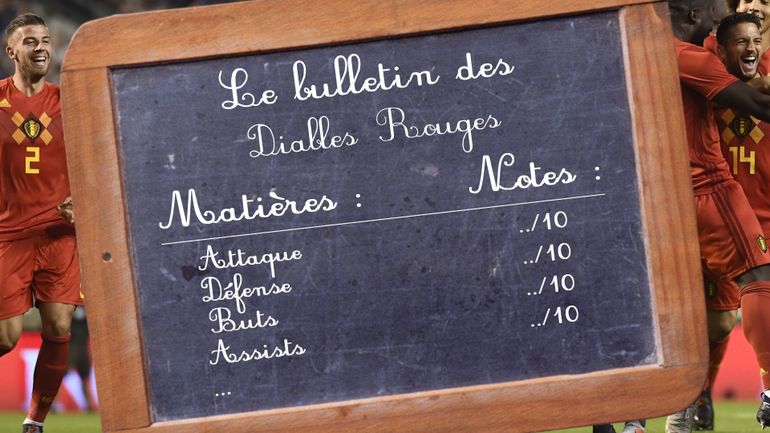 Le bulletin des
Diables Rouges
Matières : Notes :
Attaque ../10
Défense ../10
Buts ../10
Assists ../10
...
2
14